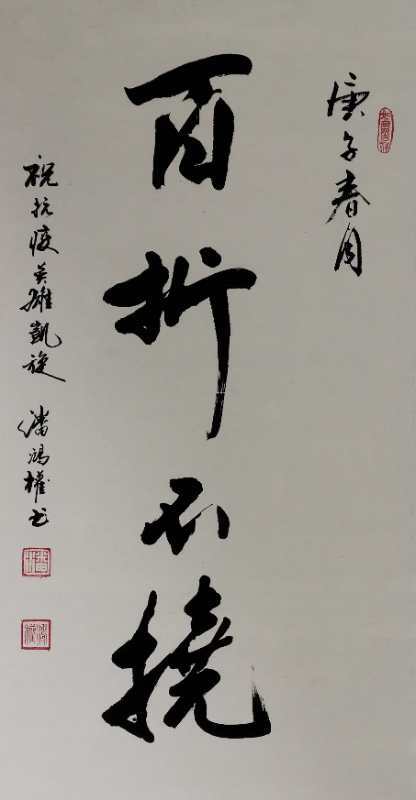 庚子春月
百折不撓
祝抗疫英雄凱旋 潘鴻權書